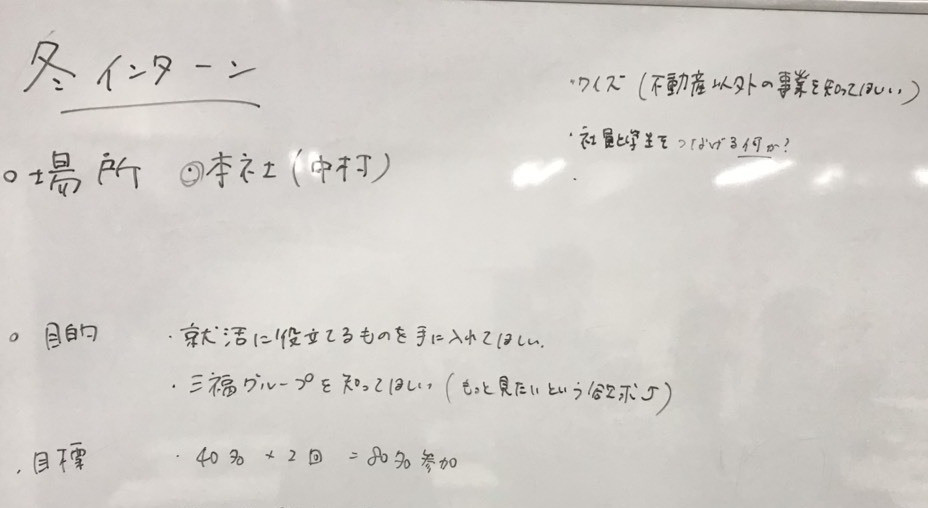 冬インターン
・クイズ(不動産以外の事業を知ってほしい)
・社員と学生をつなげる何か?
・
○場所 ◎本社(中村)
○目的 ・就活に役立てるものを手に入れてほしい.
・三福グループを知ってほしい(もっと見たいという欲求↑)
・目標 ・40名×2回=80名参加